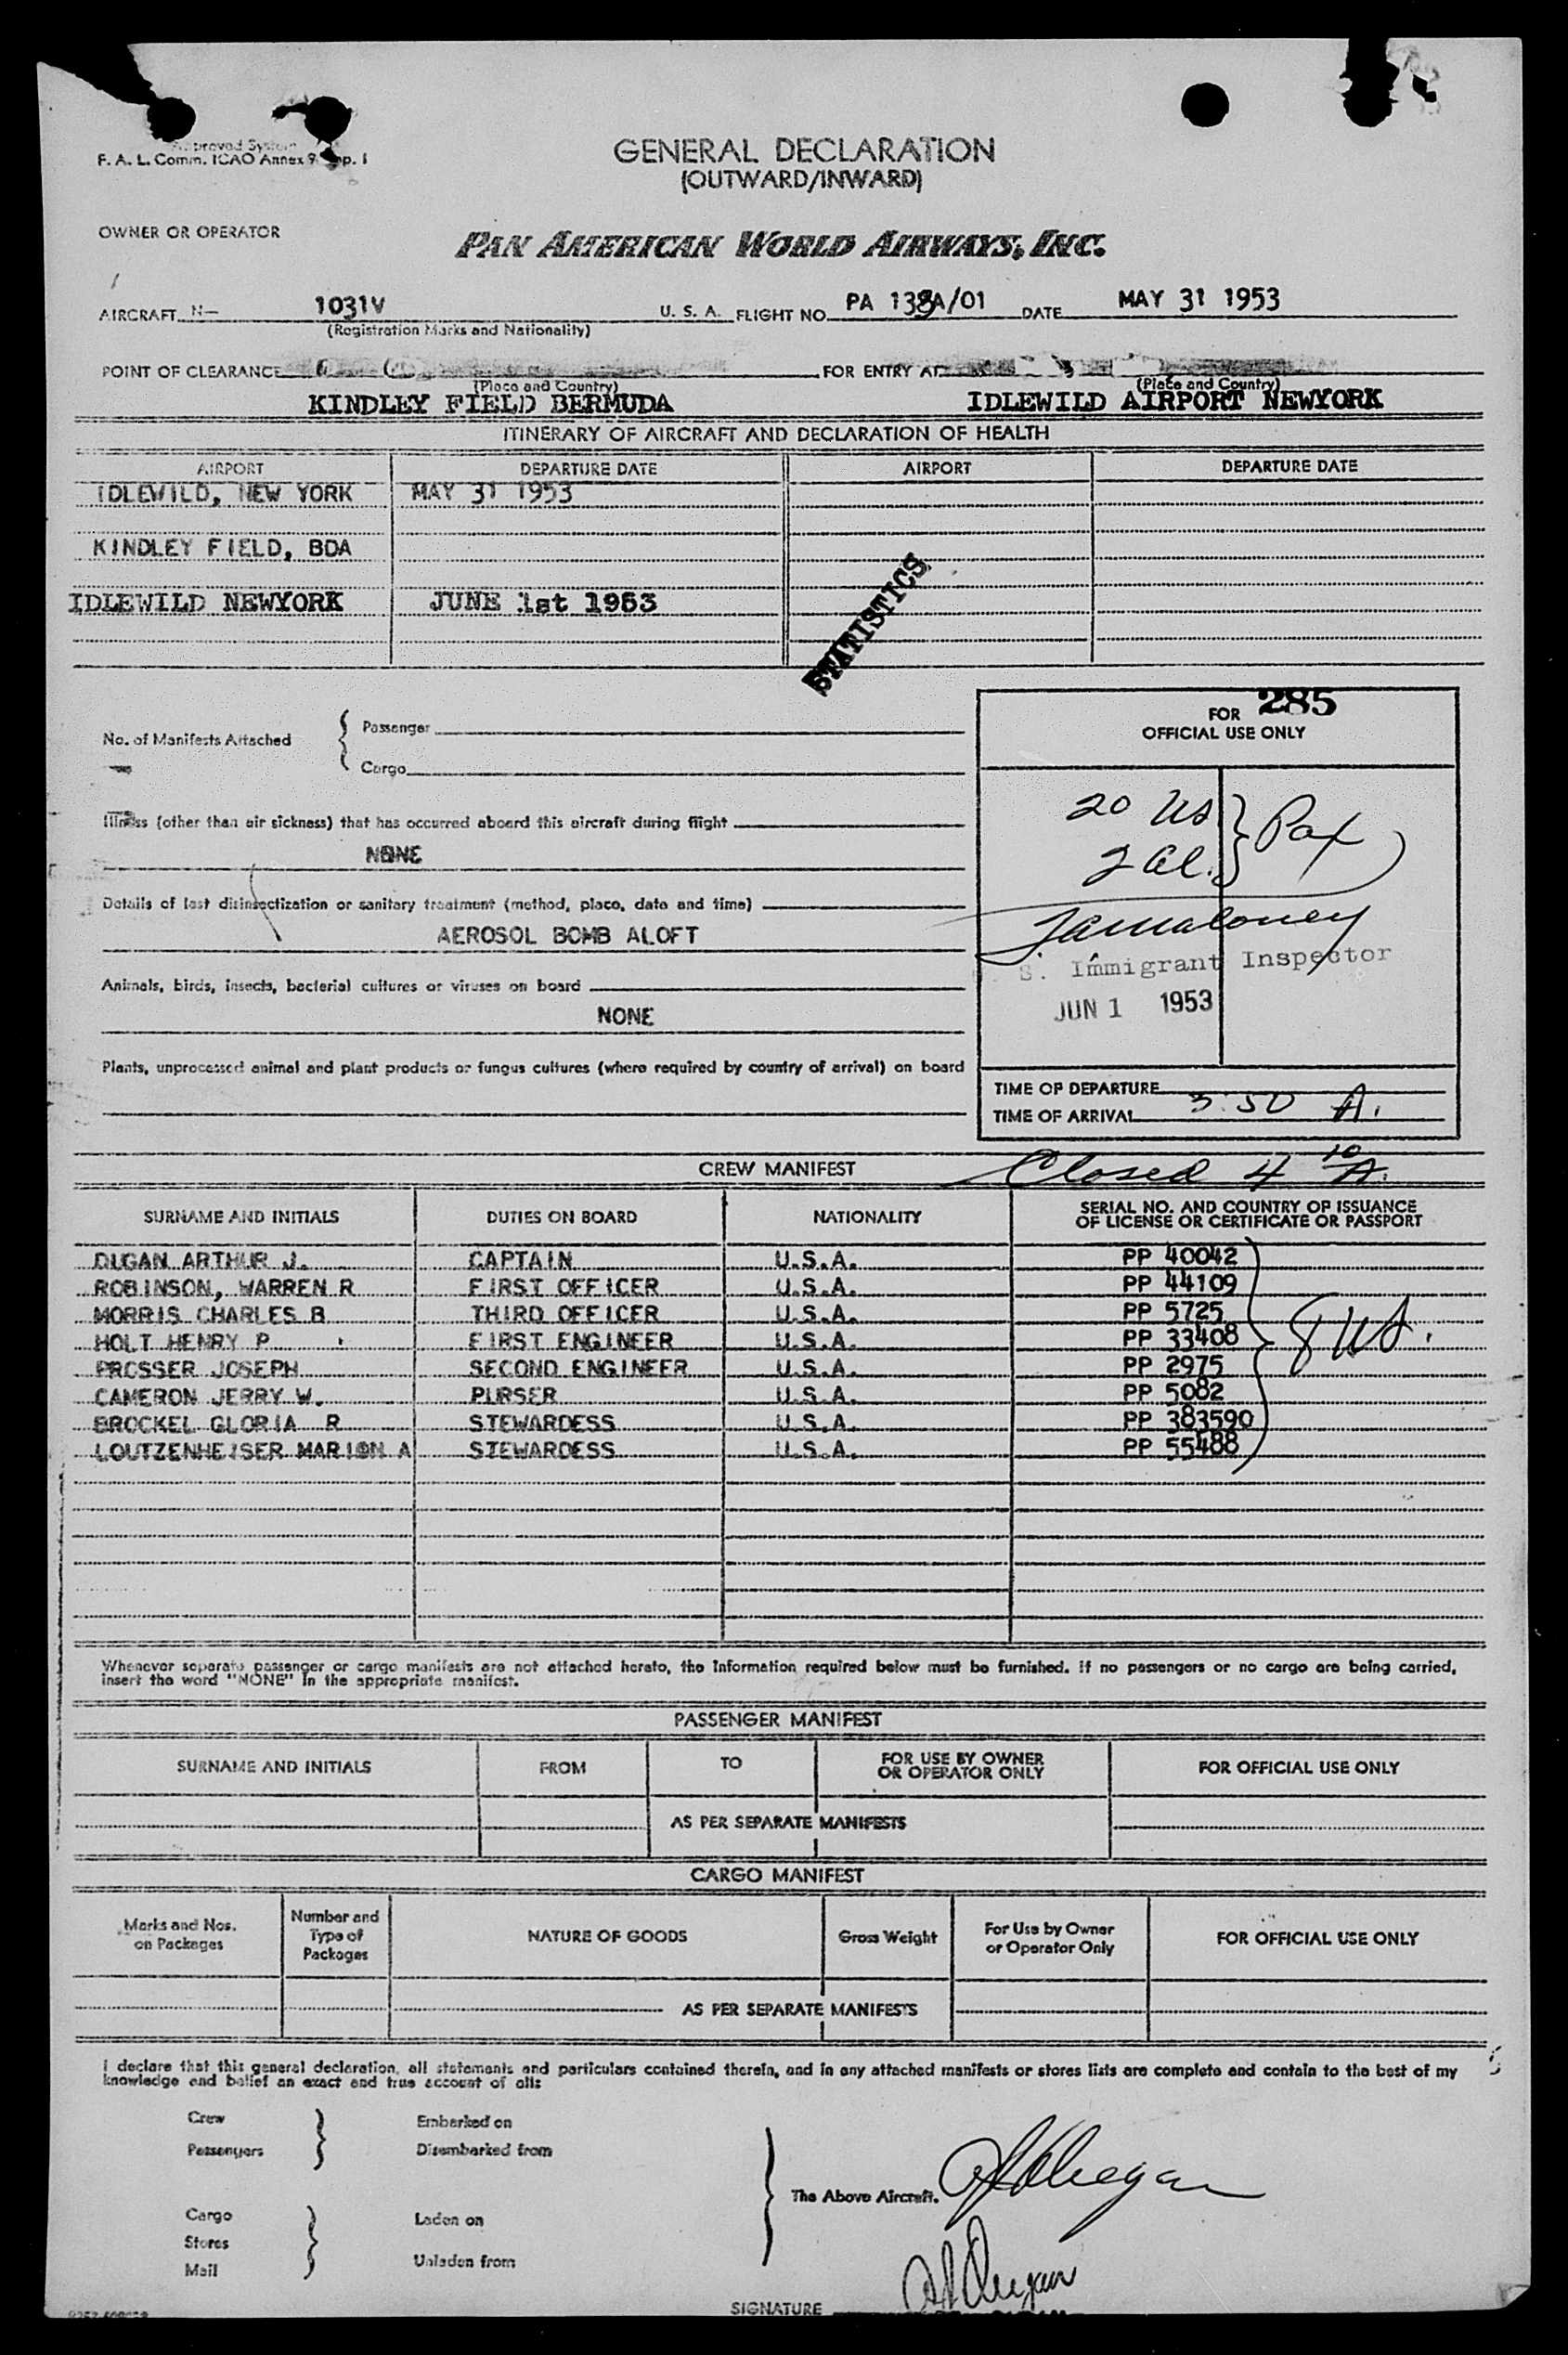 Approved System
F. A. L. Comm. ICAO Annex 9 App. 1
GENERAL DECLARATION
(OUTWARD/INWARD)
OWNER OR OPERATOR
PAN AMERICAN WORLD AIRWAYS, INC.
AIRCRAFT N— 1031V U. S. A. FLIGHT NO. PA 138A/01 DATE MAY 31 1953
(Registration Marks and Nationality)
POINT OF CLEARANCE FOR ENTRY AT
(Place and Country) (Place and Country)
KINDLEY FIELD BERMUDA IDLEWILD AIRPORT NEWYORK
ITINERARY OF AIRCRAFT AND DECLARATION OF HEALTH
AIRPORT DEPARTURE DATE AIRPORT DEPARTURE DATE
IDLEWILD, NEW YORK MAY 31 1953
KINDLEY FIELD, BDA
IDLEWILD NEWYORK JUNE 1st 1953
STATISTICS
FOR 285
OFFICIAL USE ONLY
No. of Manifests Attached
Passenger
Cargo
20 US
2 Al. Pax
Illness (other than air sickness) that has occurred aboard this aircraft during flight
NONE
Details of last disinsectization or sanitary treatment (method, place, date and time)
AEROSOL BOMB ALOFT
Jamaloney
S. Immigrant Inspector
JUN 1 1953
Animals, birds, insects, bacterial cultures or viruses on board
NONE
Plants, unprocessed animal and plant products or fungus cultures (where required by country of arrival) on board
TIME OF DEPARTURE
TIME OF ARRIVAL 3:50 A.
CREW MANIFEST Closed 4 10 A.
SURNAME AND INITIALS DUTIES ON BOARD NATIONALITY SERIAL NO. AND COUNTRY OF ISSUANCE
OF LICENSE OR CERTIFICATE OR PASSPORT
DUGAN ARTHUR J. CAPTAIN U.S.A. PP 40042
ROBINSON, WARREN R FIRST OFFICER U.S.A. PP 44109
MORRIS CHARLES B THIRD OFFICER U.S.A. PP 5725
HOLT HENRY P FIRST ENGINEER U.S.A. PP 33408 8 US.
PROSSER JOSEPH SECOND ENGINEER U.S.A. PP 2975
CAMERON JERRY W. PURSER U.S.A. PP 5082
BROCKEL GLORIA R STEWARDESS U.S.A. PP 383590
LOUTZENHEISER MARION A STEWARDESS U.S.A. PP 55488
Whenever separate passenger or cargo manifests are not attached hereto, the information required below must be furnished. If no passengers or no cargo are being carried,
insert the word "NONE" in the appropriate manifest.
PASSENGER MANIFEST
SURNAME AND INITIALS FROM TO FOR USE BY OWNER
OR OPERATOR ONLY FOR OFFICIAL USE ONLY
AS PER SEPARATE MANIFESTS
CARGO MANIFEST
Marks and Nos.
on Packages Number and
Type of
Packages NATURE OF GOODS Gross Weight For Use by Owner
or Operator Only FOR OFFICIAL USE ONLY
AS PER SEPARATE MANIFESTS
I declare that this general declaration, all statements and particulars contained therein, and in any attached manifests or stores lists are complete and contain to the best of my
knowledge and belief an exact and true account of all:
Crew Embarked on
Passengers Disembarked from
The Above Aircraft.
Cargo Laden on
Stores
Mail Unladen from
SIGNATURE